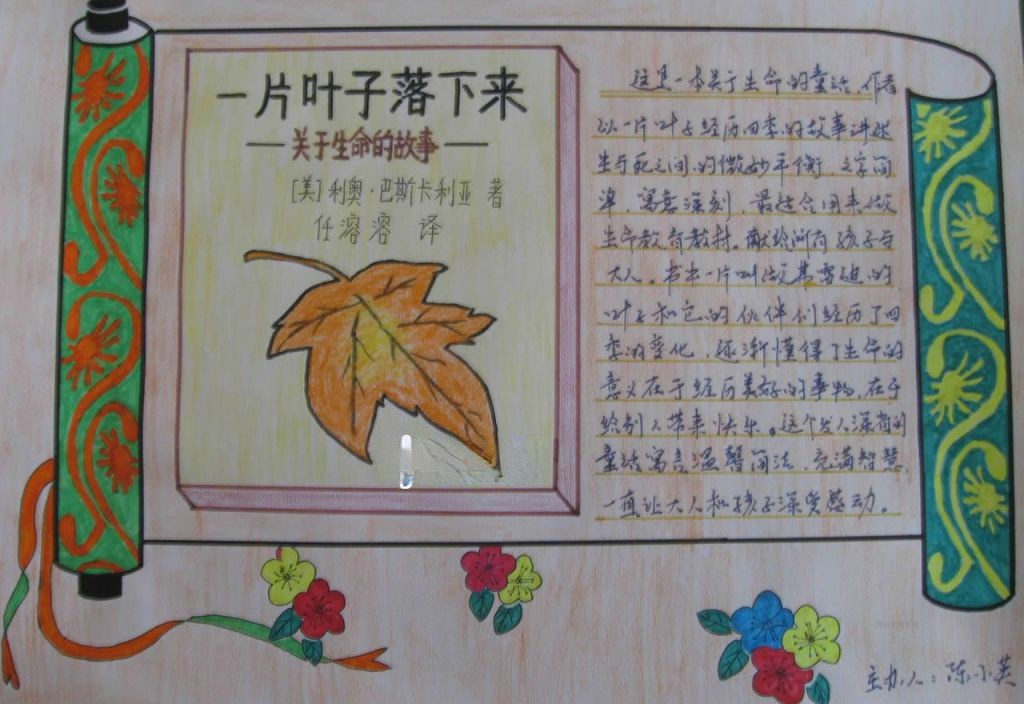 一片叶子落下来
—关于生命的故事—
[美]利奥·巴斯卡利亚 著
任溶溶 译
这是一本关于生命的童话 作者
以一片叶子经历四季的故事讲述
生与死之间的微妙平衡.文字简
单.寓意深刻.最适合用来做
生命教育教材。献给所有孩子与
大人。书中一片叫做弗雷迪的
叶子和它的伙伴们经历了四
季的变化.逐渐懂得了生命的
意义在于经历美好的事物,在于
给别人带来快乐。这个发人深省的
童话寓言温馨简洁.充满智慧.
一直让大人和孩子深受感动。
主办人:陈小英